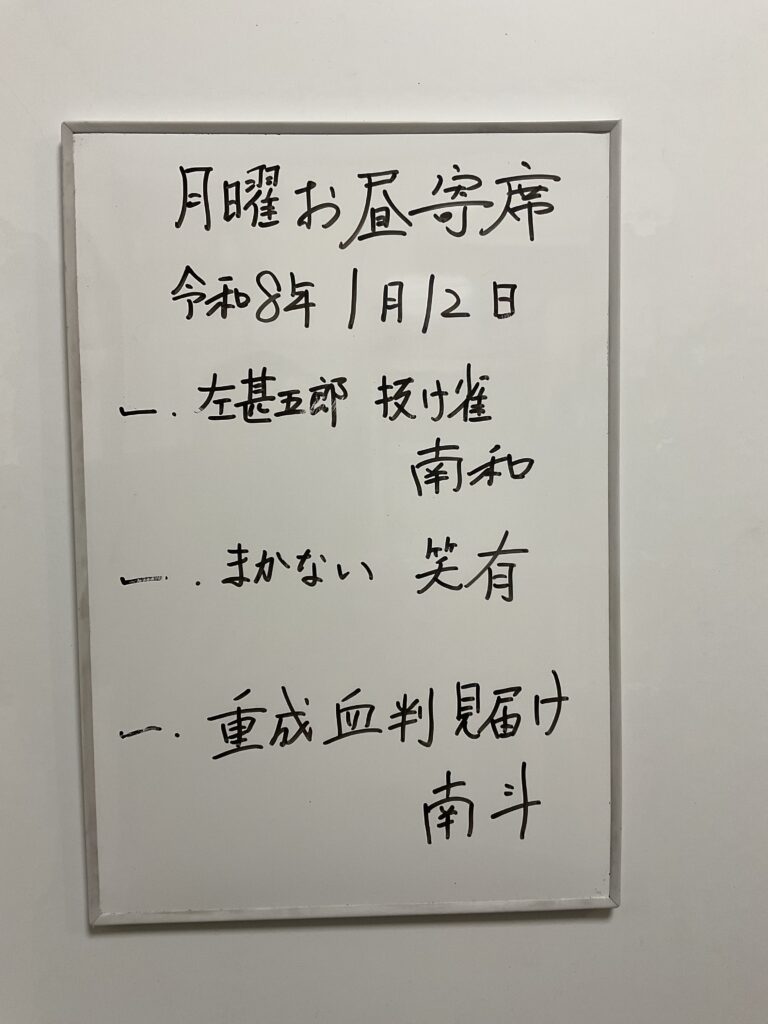 月曜お昼寄席
令和8年1月12日
一. 左甚五郎 抜け雀
南和
一. まかない 笑有
一. 重成血判見届け
南斗